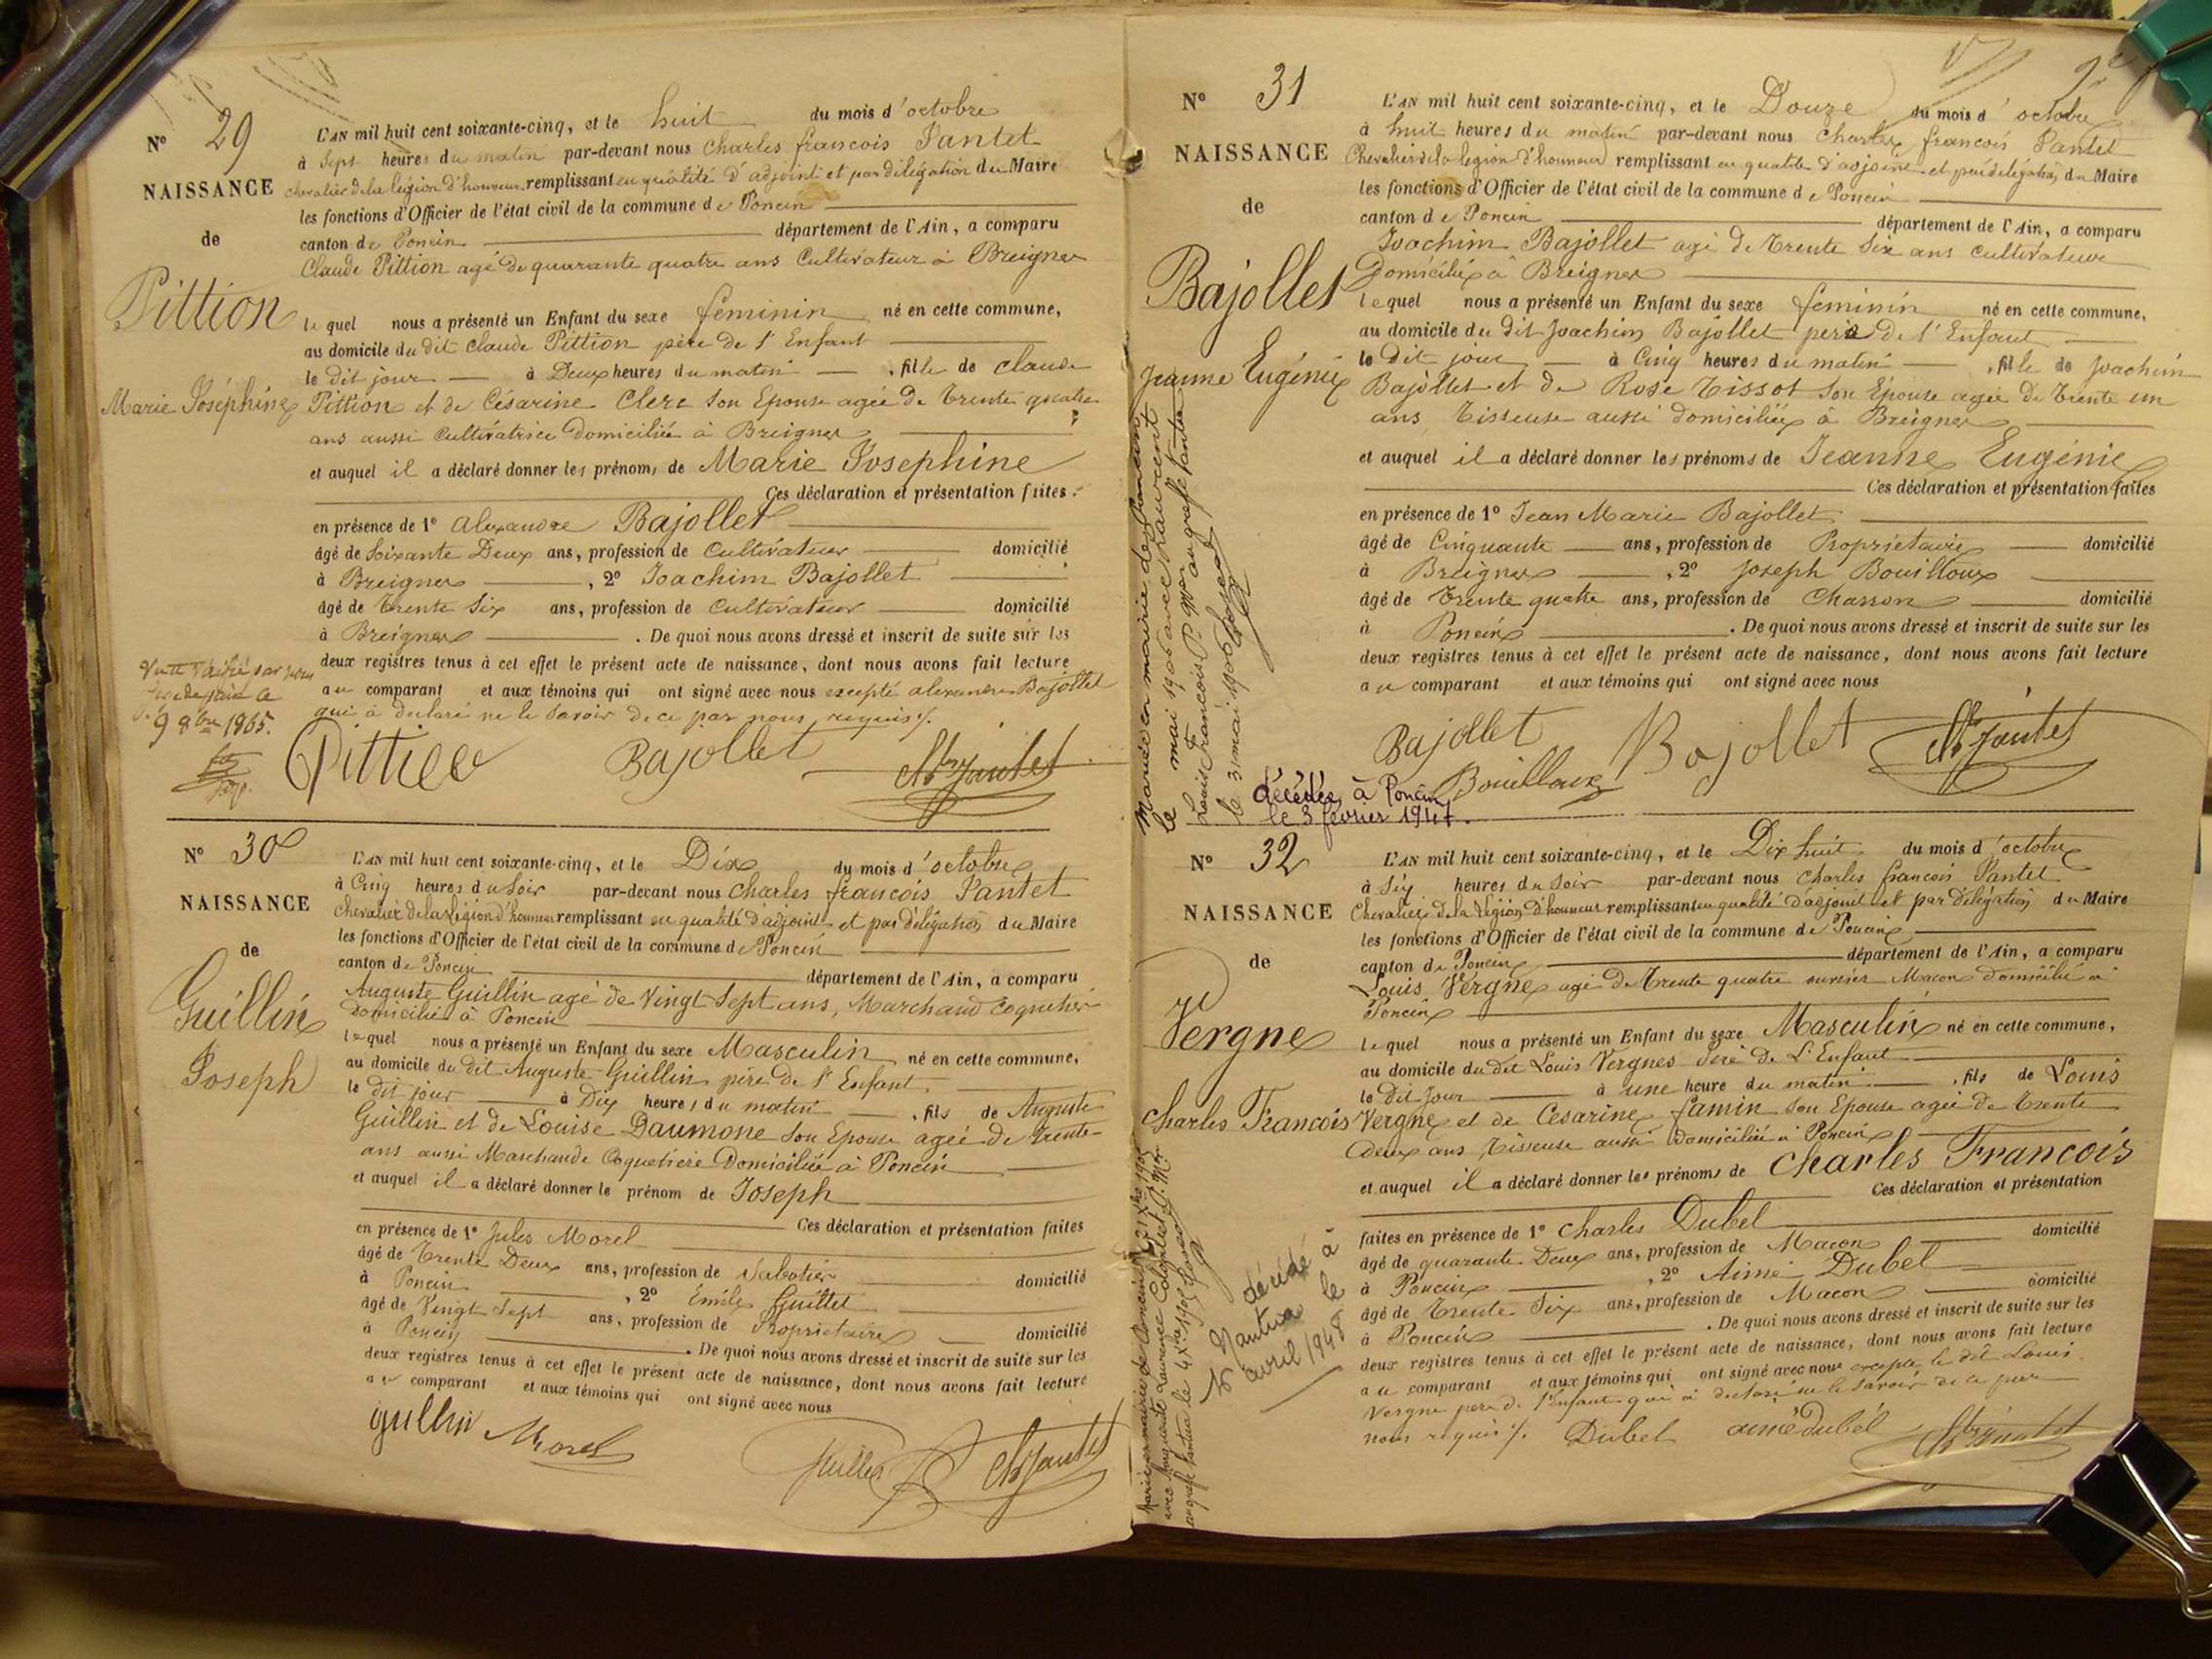 N° 29
NAISSANCE
de
Pittion
Marie Joséphine
L'AN mil huit cent soixante-cinq, et le huit du mois d'octobre
à Sept heures du matin par-devant nous Charles françois Pantet
chevalier de la légion d'honneur remplissant en qualité d'adjoint et par délégation du Maire
les fonctions d'Officier de l'état civil de la commune de Poncin
canton de Poncin département de l'Ain, a comparu
Claude Pittion agé de quarante quatre ans Cultivateur à Breignes
lequel nous a présenté un Enfant du sexe feminin né en cette commune,
au domicile du dit Claude Pittion père de l'Enfant
le dit jour à Deux heures du matin , fille de claude
Pittion et de Césarine Clerc son Epouse agée de trente quatre
ans aussi Cultivatrice Domiciliée à Breignes
et auquel il a déclaré donner les prénoms de Marie Josephine
Ces déclaration et présentation faites
en présence de 1° alexandre Bajollet
âgé de Soixante Deux ans, profession de Cultivateur domicilié
à Breignes , 2° Joachim Bajollet
âgé de trente Six ans, profession de Cultivateur domicilié
à Breignes . De quoi nous avons dressé et inscrit de suite sur les
deux registres tenus à cet effet le présent acte de naissance, dont nous avons fait lecture
au comparant et aux témoins qui ont signé avec nous excepté alexandre Bajollet
qui à declaré ne le savoir de ce par nous requis ./.
9 8bre 1865.
Bajollet
N° 30
NAISSANCE
de
Guillin
Joseph
L'AN mil huit cent soixante-cinq, et le Dix du mois d'octobre
à Cinq heures du Soir par-devant nous Charles françois Pantet
Chevalier de la Légion d'honneur remplissant en qualité d'adjoint et par délégation du Maire
les fonctions d'Officier de l'état civil de la commune de Poncin
canton de Poncin département de l'Ain, a comparu
Auguste Guillin agé de Vingt-Sept ans, Marchand Coquetier
domicilié à Poncin
lequel nous a présenté un Enfant du sexe Masculin né en cette commune,
au domicile du dit Auguste Guillin père de l'Enfant
le dit jour à Dix heures du matin , fils de Auguste
Guillin et de Louise Daumone son Epouse agée de trente
ans aussi Marchande Coquetière Domiciliée à Poncin
et auquel il a déclaré donner le prénom de Joseph
Ces déclaration et présentation faites
en présence de 1° Jules Morel
âgé de trente Deux ans, profession de Sabotier domicilié
à Poncin , 2° Emile Guillet
âgé de Vingt Sept ans, profession de Propriétaire domicilié
à Poncin . De quoi nous avons dressé et inscrit de suite sur les
deux registres tenus à cet effet le présent acte de naissance, dont nous avons fait lecture
au comparant et aux témoins qui ont signé avec nous
Morel
N° 31
NAISSANCE
de
Bajollet
Jeanne Eugénie
L'AN mil huit cent soixante-cinq, et le Douze du mois d'octobre
à huit heures du matin par-devant nous Charles françois Pantet
Chevalier de la légion d'honneur remplissant en qualité d'adjoint et par délégation du Maire
les fonctions d'Officier de l'état civil de la commune de Poncin
canton de Poncin département de l'Ain, a comparu
Joachim Bajollet agé de trente Six ans cultivateur
Domicilié à Breignes
lequel nous a présenté un Enfant du sexe feminin né en cette commune,
au domicile du dit Joachim Bajollet père de l'Enfant
le dit jour à Cinq heures du matin , fille de Joachim
Bajollet et de Rose Tissot son Epouse agée de trente un
ans Tisseuse aussi domiciliée à Breignes
et auquel il a déclaré donner les prénoms de Jeanne Eugénie
Ces déclaration et présentation faites
en présence de 1° Jean Marie Bajollet
âgé de Cinquante ans, profession de Propriétaire domicilié
à Breignes , 2° Joseph Bouilloux
âgé de trente quatre ans, profession de Charron domicilié
à Poncin . De quoi nous avons dressé et inscrit de suite sur les
deux registres tenus à cet effet le présent acte de naissance, dont nous avons fait lecture
au comparant et aux témoins qui ont signé avec nous
Bajollet Bajollet
Bouilloux
Mariée en mairie de
le mai 1906 avec
Louis François
le 31 mai 1906
décédée à Poncin
le 3 février 1947.
N° 32
NAISSANCE
de
Vergne
Charles François
L'AN mil huit cent soixante-cinq, et le Dix huit du mois d'octobre
à Six heures du Soir par-devant nous Charles françois Pantet
Chevalier de la légion d'honneur remplissant en qualité d'adjoint et par délégation du Maire
les fonctions d'Officier de l'état civil de la commune de Poncin
canton de Poncin département de l'Ain, a comparu
Louis Vergne agé de trente quatre ouvrier Macon domicilié à
Poncin
lequel nous a présenté un Enfant du sexe Masculin né en cette commune,
au domicile du dit Louis Vergnes Père de L'Enfant
le dit Jour à une heure du matin , fils de Louis
Vergne et de Césarine famin son Epouse agée de trente
Deux ans, Tisseuse aussi domiciliée à Poncin
et auquel il a déclaré donner les prénoms de Charles François
Ces déclaration et présentation
faites en présence de 1° Charles Dubel
âgé de quarante Deux ans, profession de Macon domicilié
à Poncin , 2° Aimé Dubel
âgé de trente Six ans, profession de Macon domicilié
à Poncin . De quoi nous avons dressé et inscrit de suite sur les
deux registres tenus à cet effet le présent acte de naissance, dont nous avons fait lecture
au comparant et aux témoins qui ont signé avec nous excepté le dit Louis
Vergne père de l'Enfant qui à declaré ne le savoir de ce par
nous requis ./. Dubel aimé dubel
décédé à
Nantua le
avril 1948